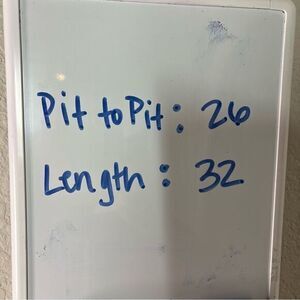 Pit to Pit: 26
Length: 32